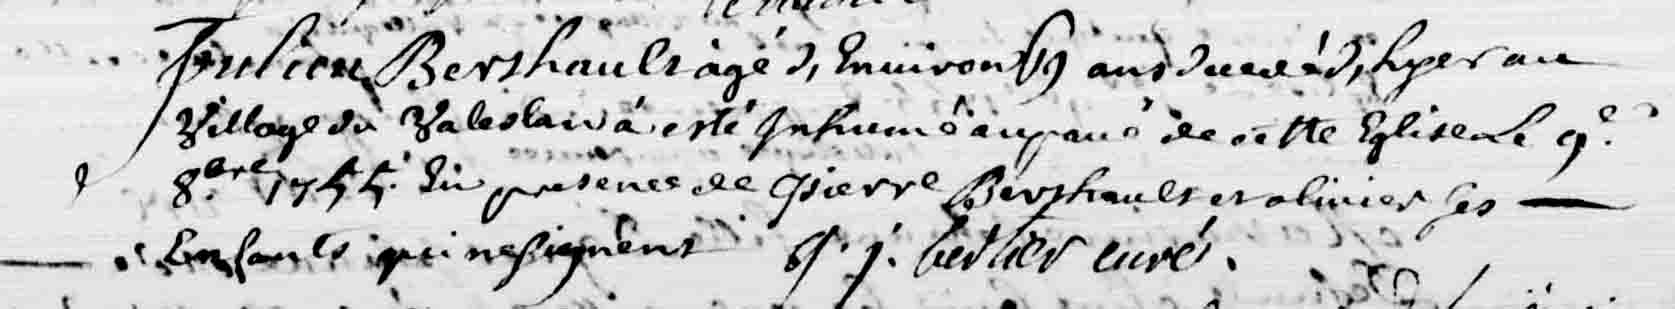 Julien Bershault agé d'environ ans decedé d'hyer au
Village du a esté Inhumé au pavé de cette Eglise Le 9e.
8bre 1755. En presence de Pierre Bershault et olivier ses
Enfants qui ne signent curé.